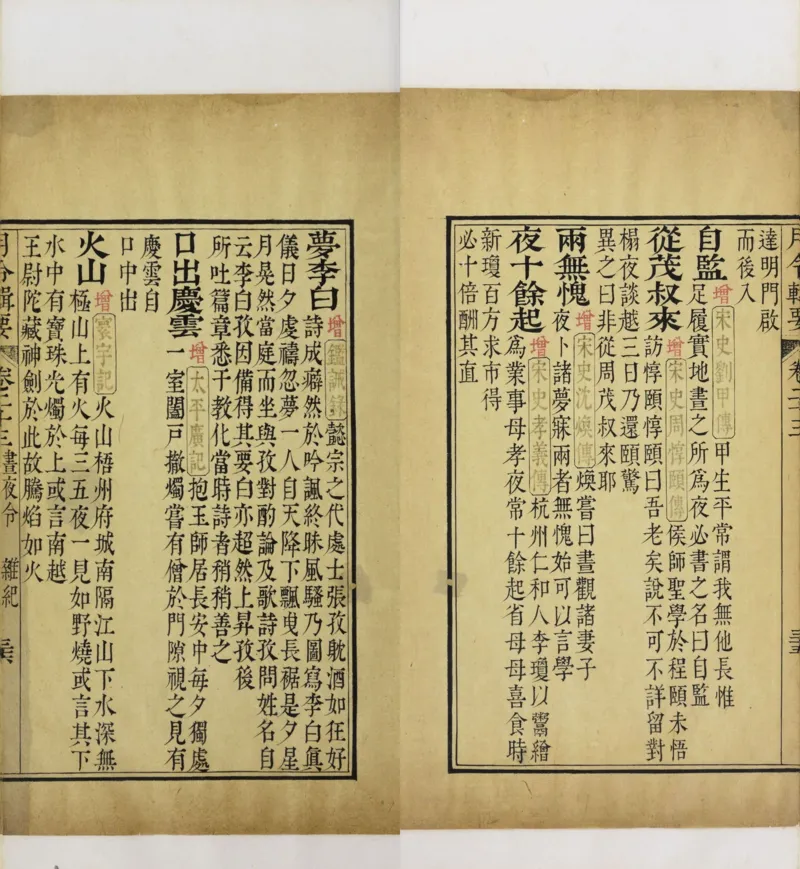 月令輯要 卷二十三 三五
達明門啟
而後入
自監 增 宋史劉甲傳 甲生平常謂我無他長惟
足履實地晝之所為夜必書之名曰自監
從茂叔來 增 宋史周惇頤傳 侯師聖學於程頤未悟
訪惇頤惇頤曰吾老矣說不可不詳留對
榻夜談越三日乃還頤驚
異之曰非從周茂叔來耶
兩無愧 增 宋史沈煥傳 煥嘗曰晝觀諸妻子
夜卜諸夢寐兩者無愧始可以言學
夜十餘起 增 宋史孝義傳 杭州仁和人李瓊以鬻繒
為業事母孝夜常十餘起省母母喜食時
新瓊百方求市得
必十倍酬其直
夢李白 增 鑑誡錄 懿宗之代處士張孜躭酒如狂好
詩成癖然於吟諷終昧風騷乃圖寫李白眞
儀日夕虔禱忽夢一人自天降下飄曳長裾是夕星
月晃然當庭而坐與孜對酌論及歌詩孜問姓名自
云李白孜因備得其要白亦超然上昇孜後
所吐篇章悉干教化當時詩者稍稍善之
口出慶雲 增 太平廣記 抱玉師居長安中每夕獨處
一室闔戶撤燭嘗有僧於門隙視之見有
慶雲自
口中出
火山 增 寰宇記 火山梧州府城南隔江山下水深無
極山上有火每三五夜一見如野燒或言其下
水中有寶珠光燭於上或言南越
王尉陀藏神劍於此故騰焰如火
月令輯要 卷二十三 晝夜令 雜紀 三六